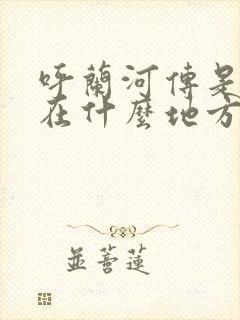 呼蘭河傳是
在什麼地方
並蒂蓮